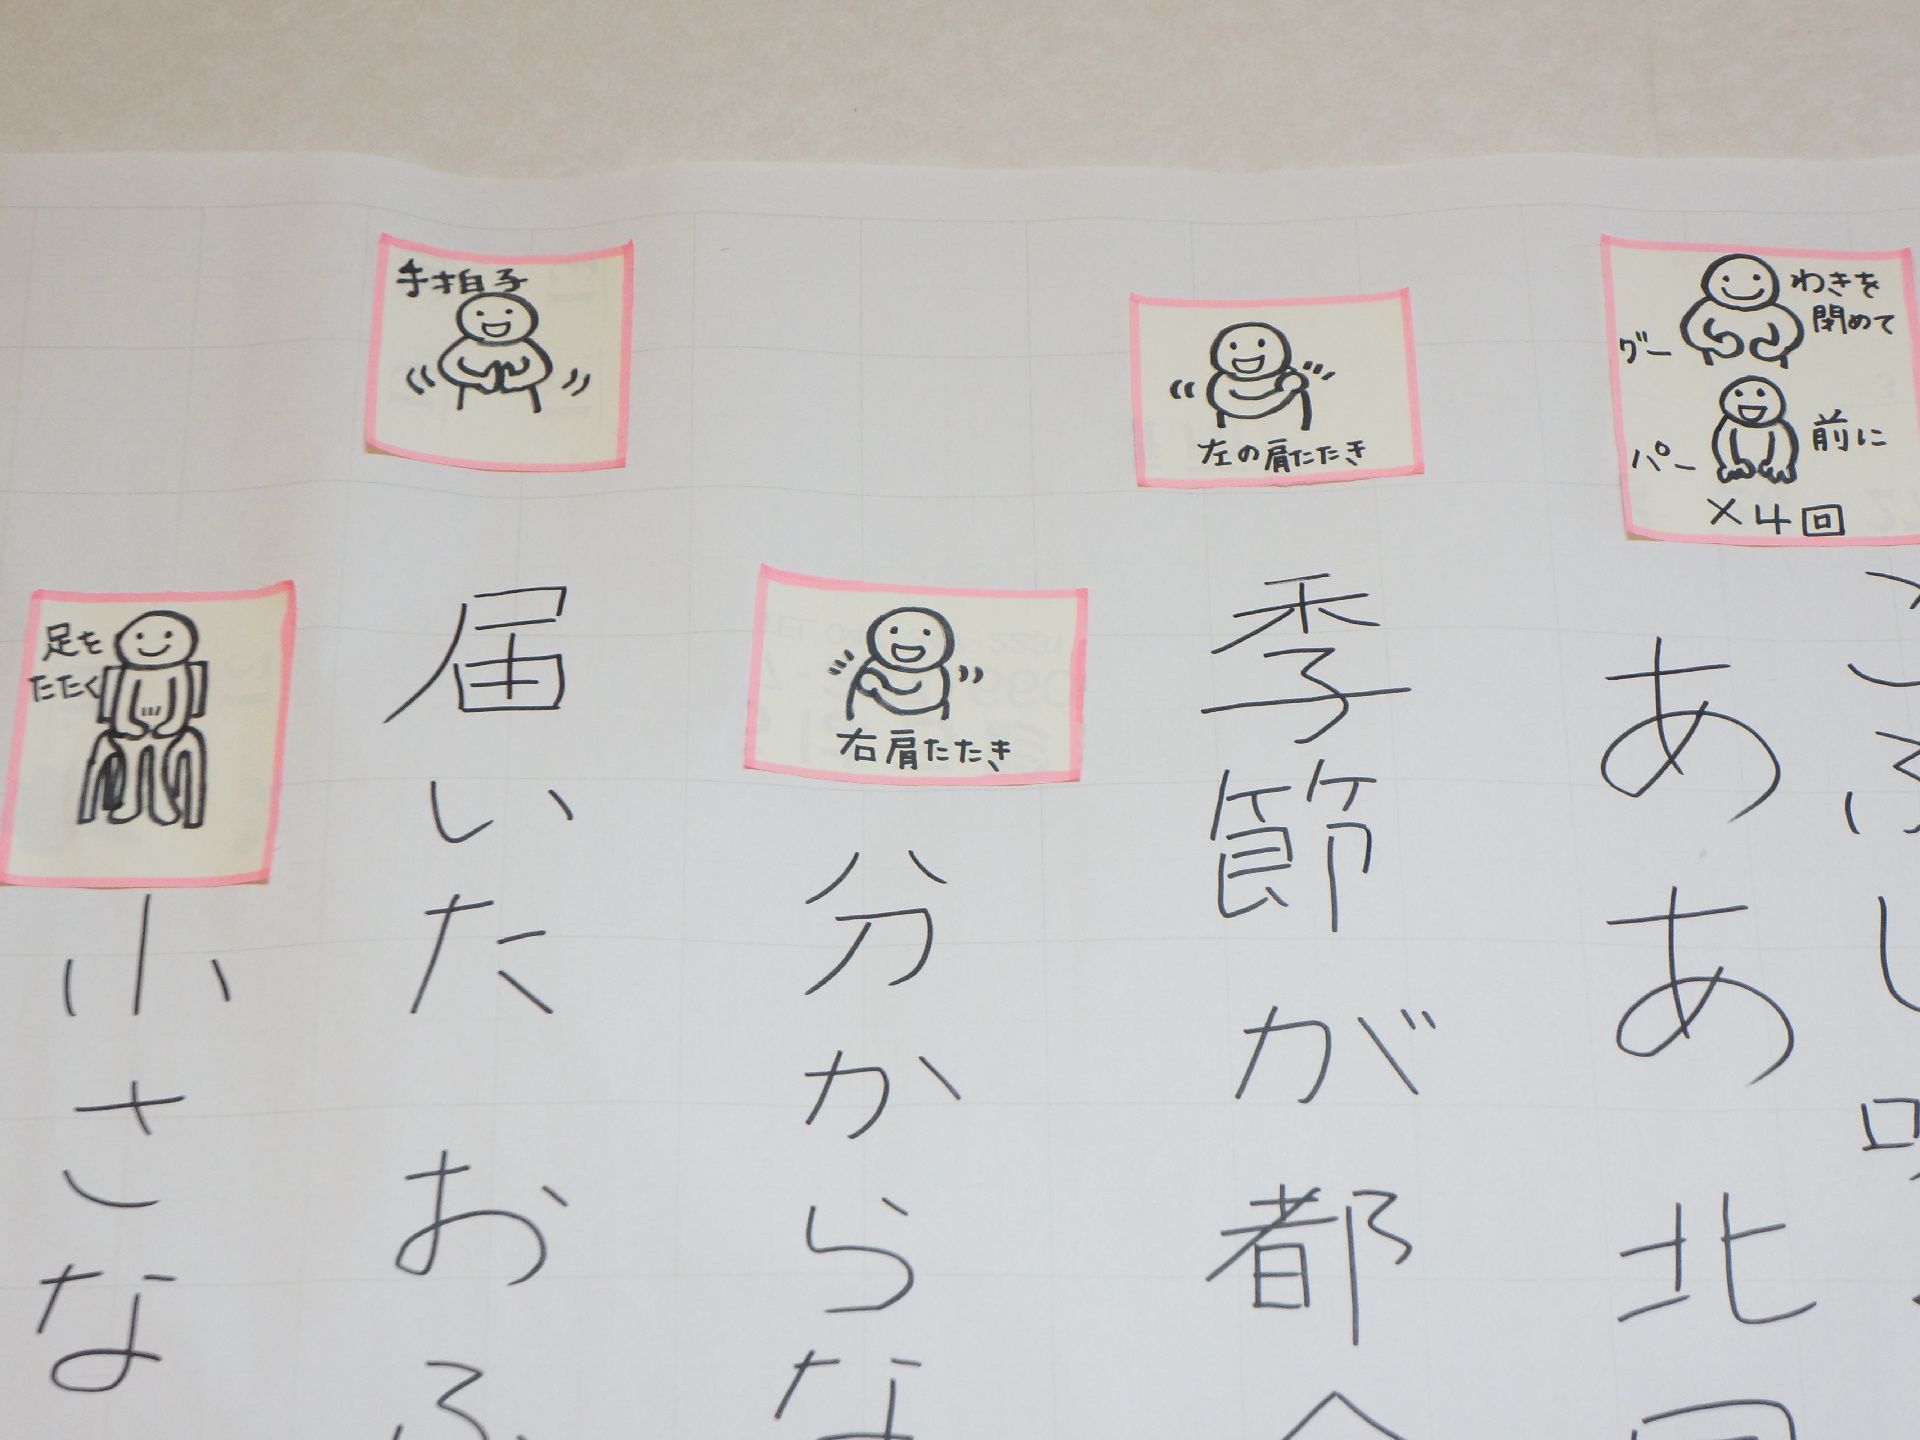 わきを
閉めて
グー
パー
前に
×4回
ああ北
左の肩たたき
季節が都
右肩たたき
分からな
手拍子
届いたおふ
足を
たたく
小さな